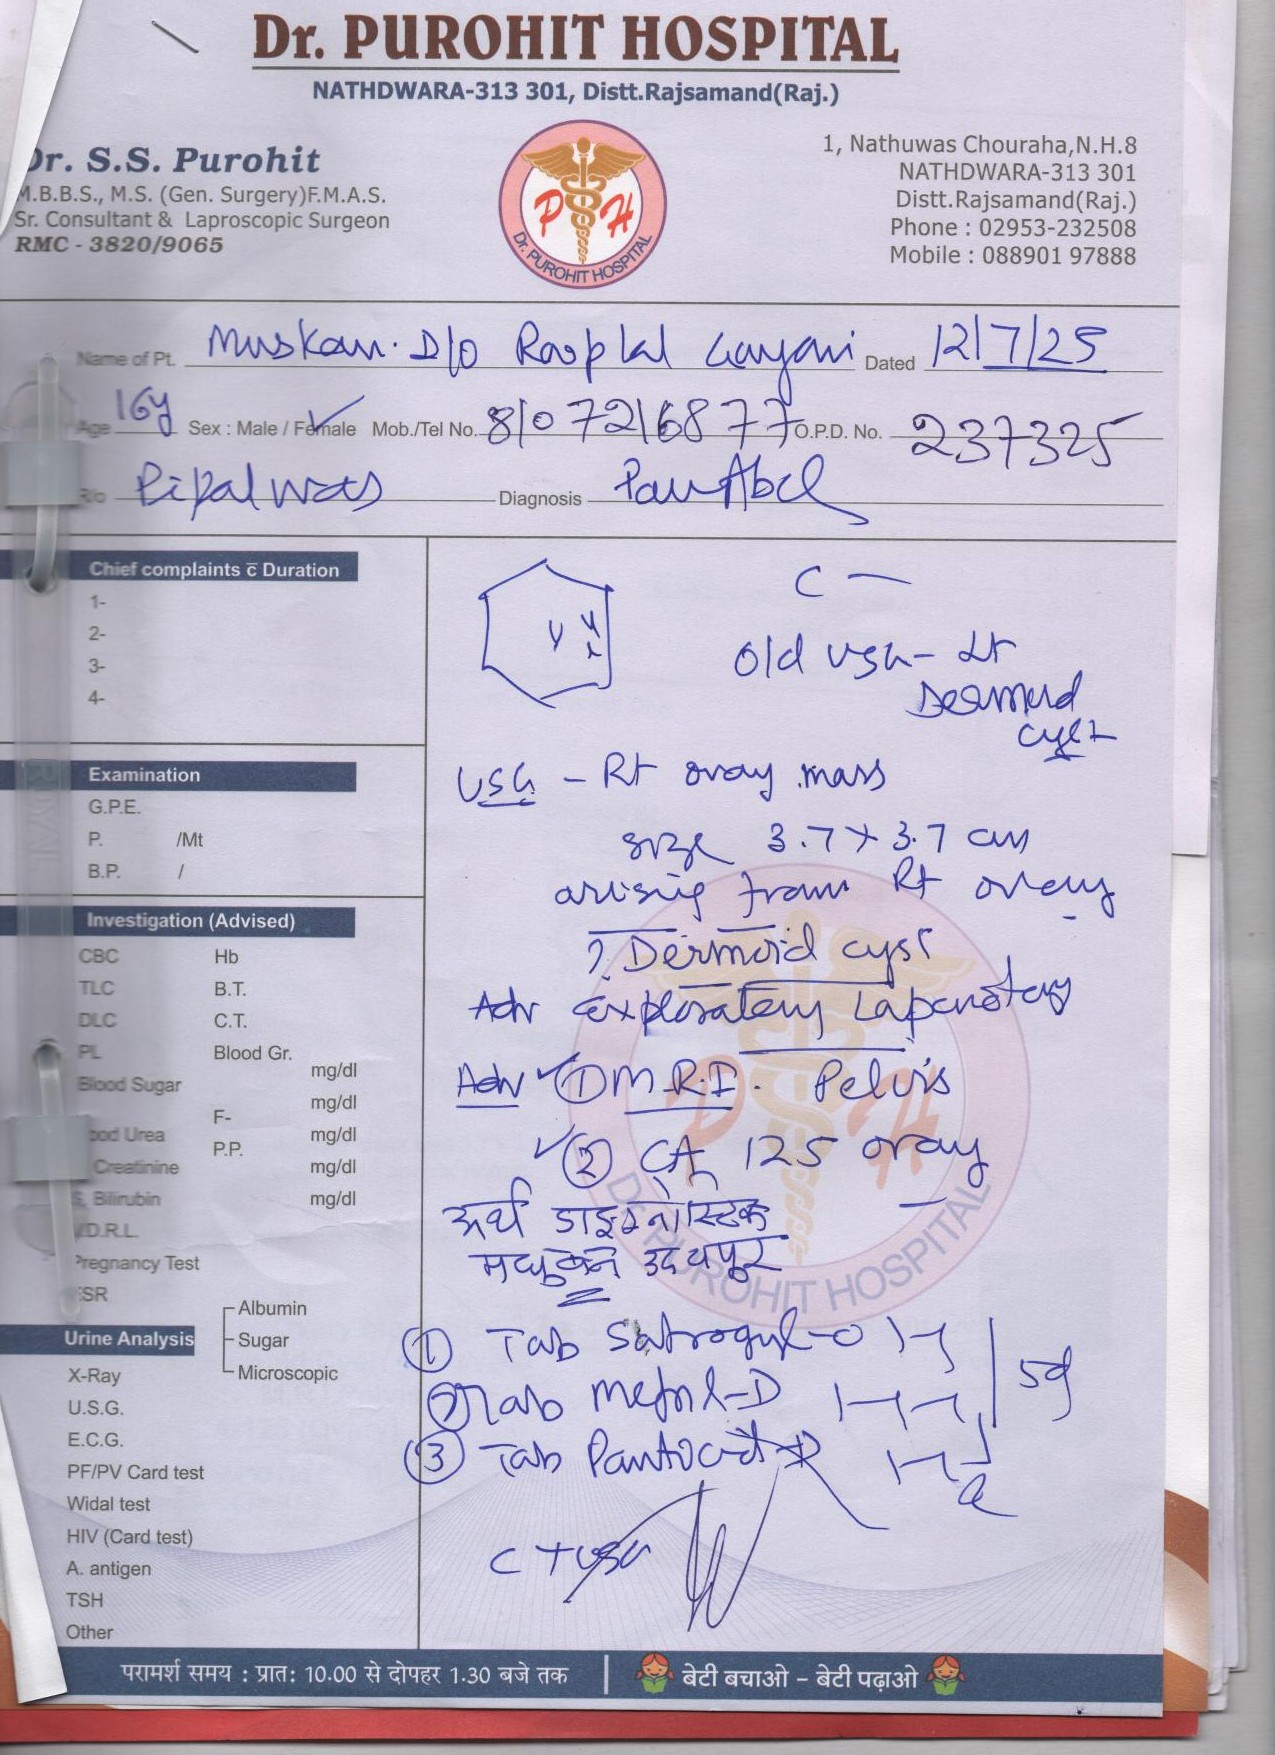 Dr. PUROHIT HOSPITAL
NATHDWARA-313 301, Distt.Rajsamand(Raj.)
Dr. S.S. Purohit
M.B.B.S., M.S. (Gen. Surgery)F.M.A.S.
Sr. Consultant & Laproscopic Surgeon
RMC - 3820/9065
P H
Dr. PUROHIT HOSPITAL
1, Nathuwas Chouraha,N.H.8
NATHDWARA-313 301
Distt.Rajsamand(Raj.)
Phone : 02953-232508
Mobile : 088901 97888
Name of Pt. Muskan. D/o Dated 12/7/25
Age 16y Sex : Male / Female Mob./Tel No. 8107216877 O.P.D. No. 237325
R/o Pipalwas Diagnosis Pain Abd
Chief complaints c̄ Duration
1-
2-
3-
4-
Examination
G.P.E.
P. /Mt
B.P. /
Investigation (Advised)
CBC Hb
TLC B.T.
DLC C.T.
PL Blood Gr.
mg/dl
Blood Sugar
mg/dl
F-
Blood Urea mg/dl
P.P.
Creatinine mg/dl
S. Bilirubin mg/dl
V.D.R.L.
Pregnancy Test
ESR
Urine Analysis
Albumin
Sugar
Microscopic
X-Ray
U.S.G.
E.C.G.
PF/PV Card test
Widal test
HIV (Card test)
A. antigen
TSH
Other
C —
Old USG - Lt
Dermoid
cyst
USG - Rt ovary mass
size 3.7 x 3.7 cm
arising from Rt ovary
? Dermoid cyst
Adv Exploratory Laparotomy
Adv ① M.R.I. Pelvis
② CA 125 ovary
अर्थ डाइग्नोस्टिक
मधुबन उदयपुर
① Tab Satrogyl-O
② Tab Meftal-D 5d
③ Tab Pantocid
C T USG
परामर्श समय : प्रात: 10.00 से दोपहर 1.30 बजे तक
बेटी बचाओ – बेटी पढ़ाओ